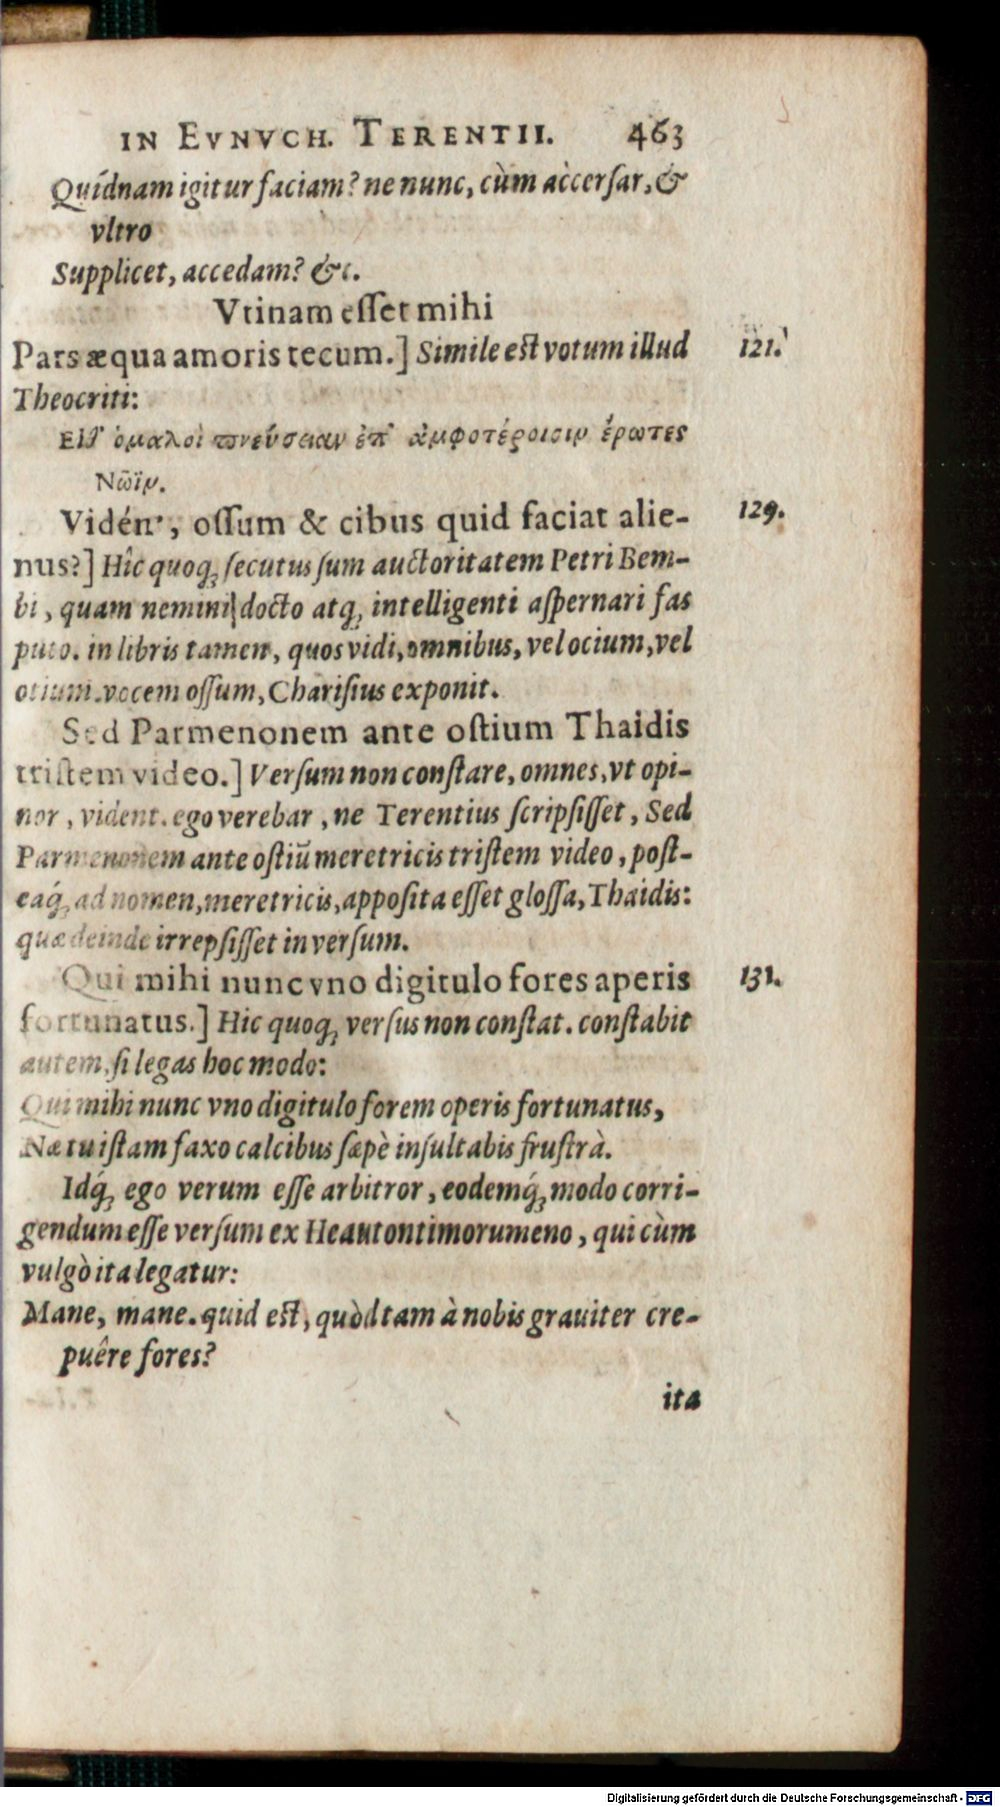 IN EVNVCH. TERENTII. 463
Quídnam igitur faciam? ne nunc, cùm àccersar, &
vltro
Supplicet, accedam? &c.
Vtinam esset mihi
Pars æqua amoris tecum.] Simile est votum illud 121.
Theocriti:
Εἰθ' ὁμαλοὶ πνεύσειαν ἐπ' ἀμφοτέροισιν ἔρωτες
Νῶϊν.
Vidén', ossum & cibus quid faciat alie- 129.
nus?] Hîc quoq; secutus sum auctoritatem Petri Bem-
bi, quam nemini docto atq; intelligenti aspernari fas
puto. in libris tamen, quos vidi, omnibus, vel ocium, vel
otium. vocem ossum, Charisius exponit.
Sed Parmenonem ante ostium Thaidis
tristem video.] Versum non constare, omnes, vt opi-
nor, vident. ego verebar, ne Terentius scripsisset, Sed
Parmenonem ante ostiũ meretricis tristem video, post-
eaq́; ad nomen, meretricis, apposita esset glossa, Thaidis:
quæ deinde irrepsisset in versum.
Qui mihi nunc vno digitulo fores aperis 131.
fortunatus.] Hic quoq; versus non constat. constabit
autem, si legas hoc modo:
Qui mihi nunc vno digitulo forem operis fortunatus,
Næ tu istam faxo calcibus sæpè insultabis frustrà.
Idq́; ego verum esse arbitror, eodemq́; modo corri-
gendum esse versum ex Heautontimorumeno, qui cùm
vulgò ita legatur:
Mane, mane. quid est, quòd tam à nobis grauiter cre-
puêre fores?
ita
Digitalisierung gefördert durch die Deutsche Forschungsgemeinschaft - DFG